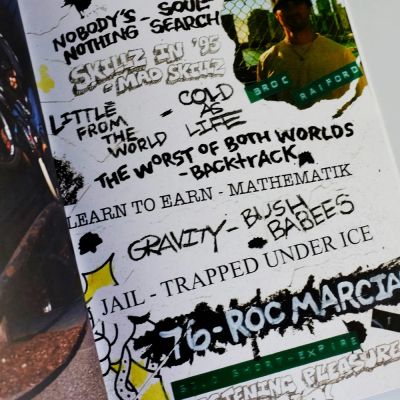 NOBODY'S - SOUL
NOTHING SEARCH
SKILLZ IN '95
- MAD SKILLZ
LITTLE - COLD
FROM AS
THE LIFE
WORLD
THE WORST OF BOTH WORLDS
- BACKTRACK
LEARN TO EARN - MATHEMATIK
GRAVITY - BUSH
BABEES
JAIL - TRAPPED UNDER ICE
'76 - ROC MARCIA
SHORT - EXPIRE
LISTENING PLEASURE
BROC RAIFORD